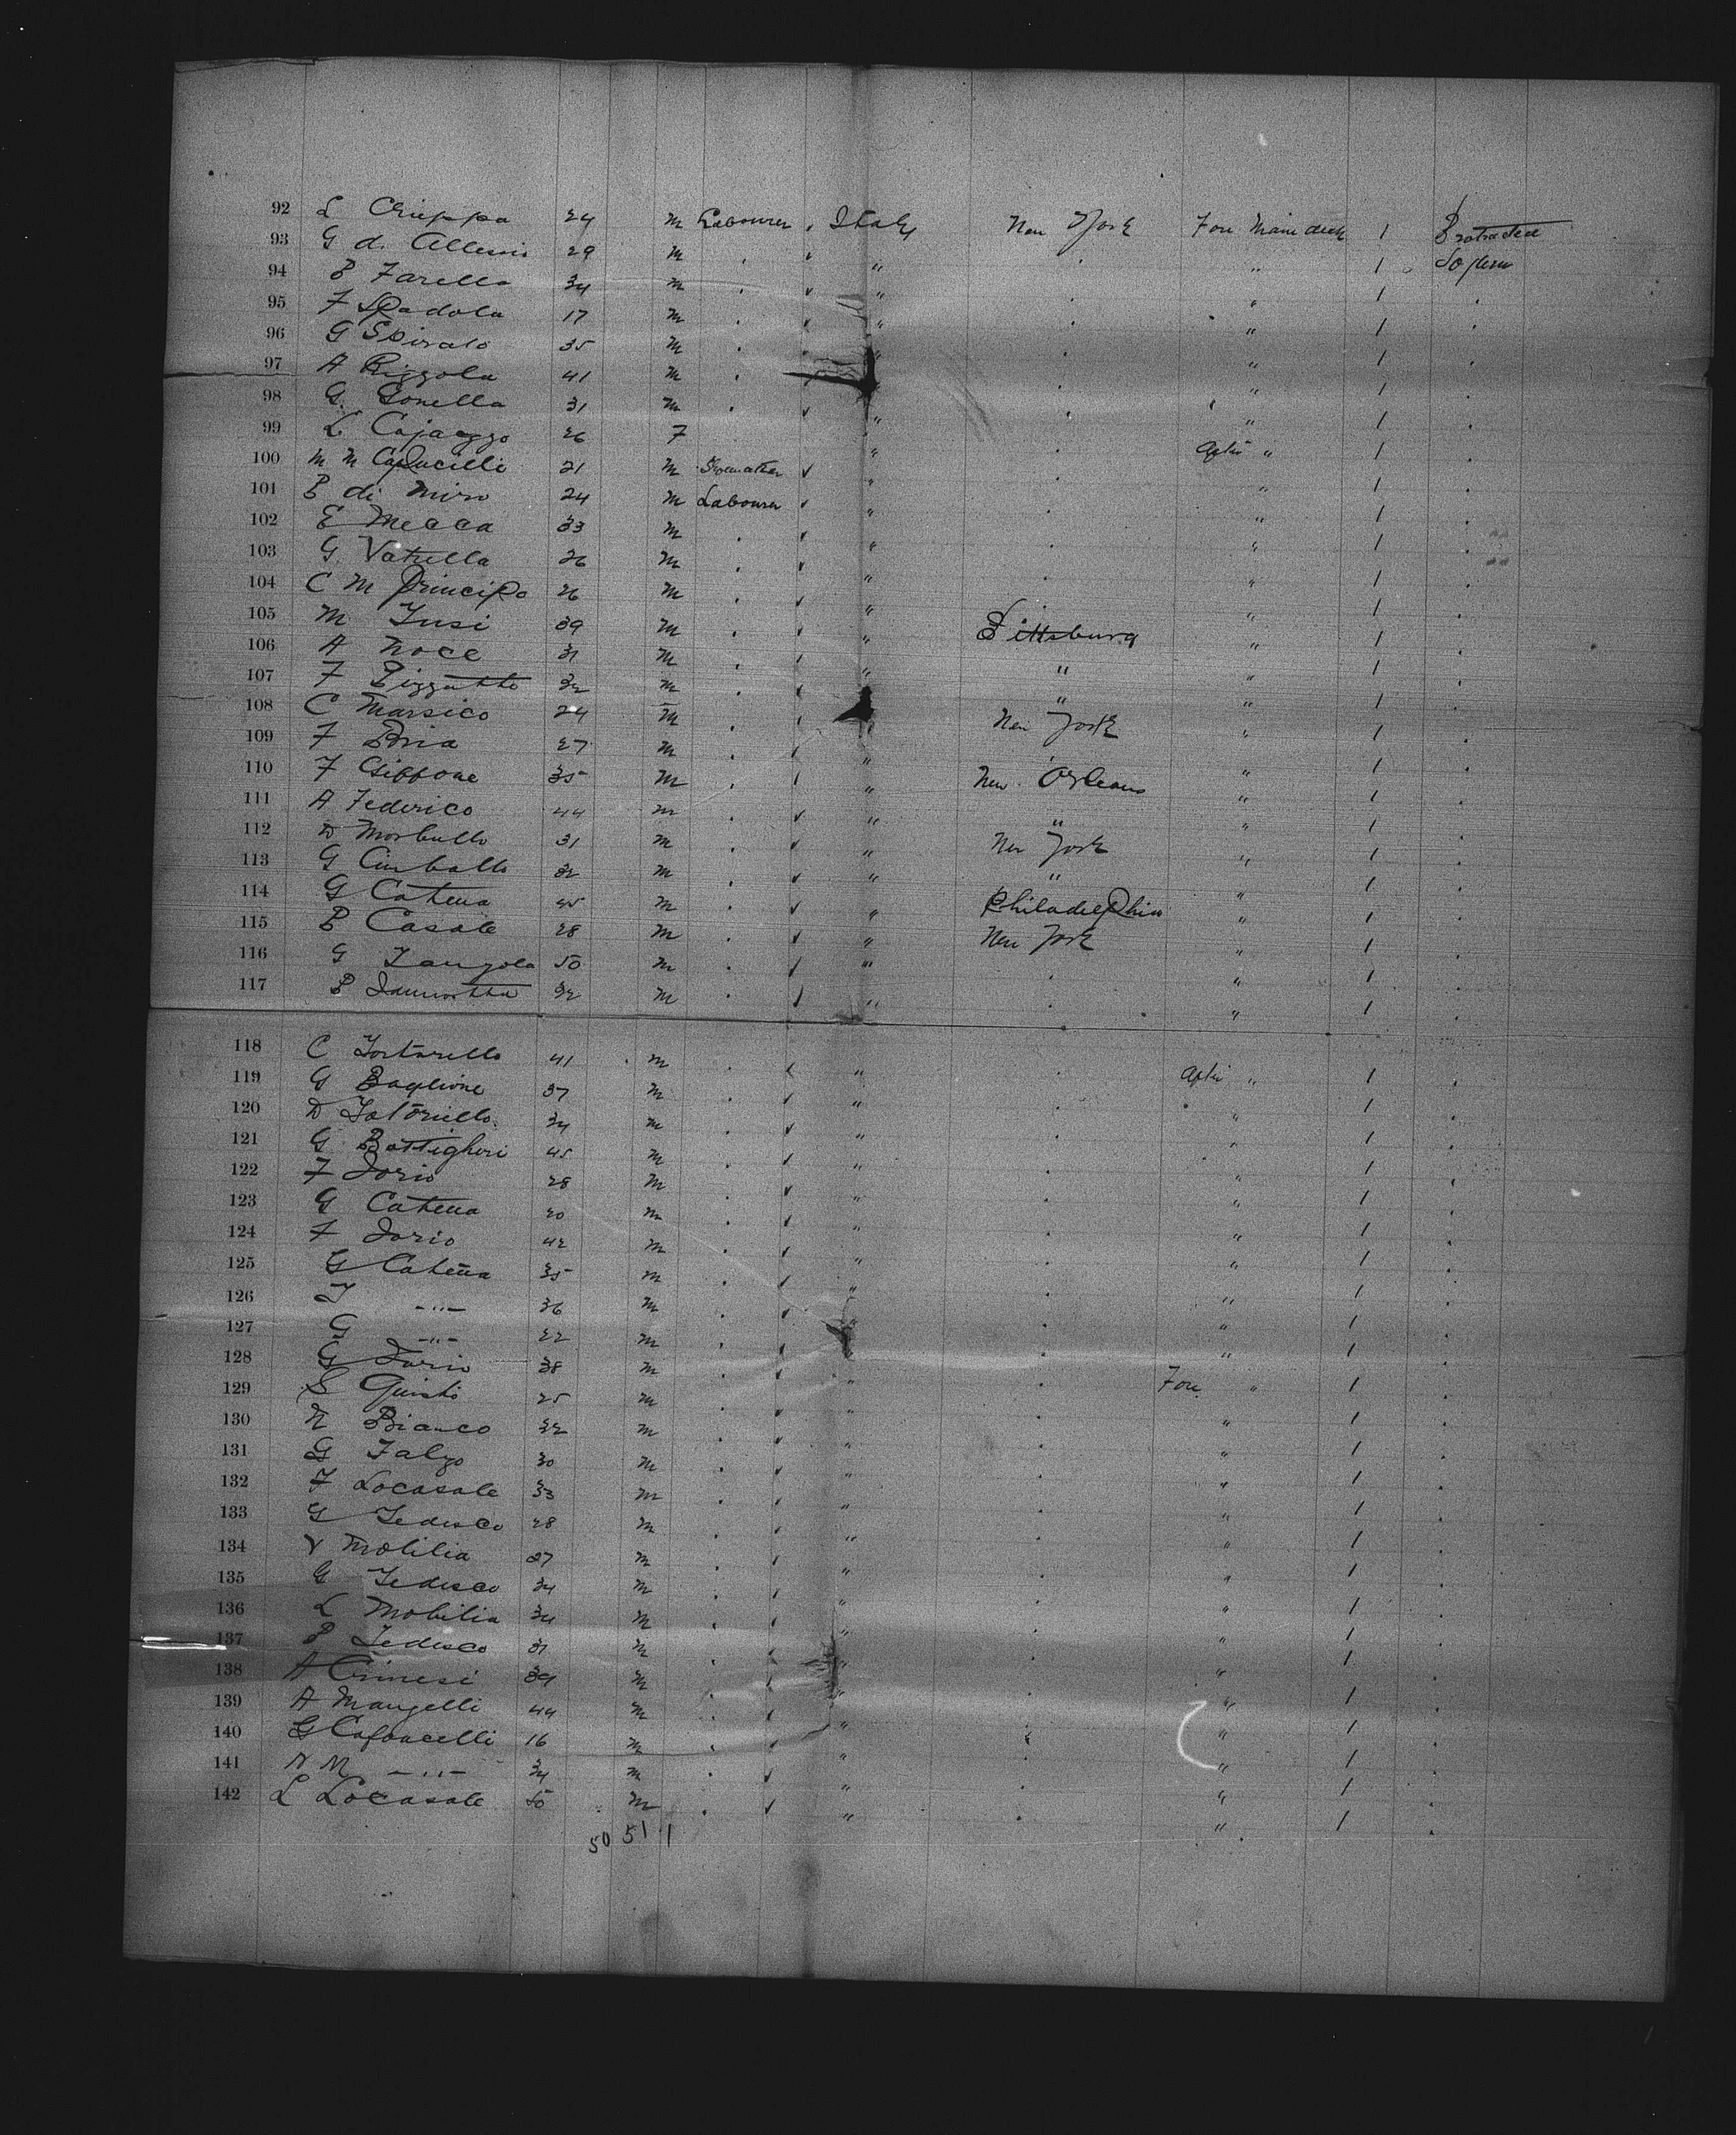 92 L Crieppa 24 m Labourer Italy New York Fore Main deck 1 Protracted
93 G d. Allessis 29 m " " 1 Sojourn
94 P Farella 34 m " " 1
95 F Spadola 17 m " " 1
96 G Spirato 35 m " " 1
97 A Rizzola 41 m " " 1
98 G. Gonella 31 m " " 1
99 L Cajazzo 26 F " After " 1
100 M M Capucilli 21 m Shoemaker " " 1
101 P di Miro 24 m Labourer " " 1
102 E Mecca 33 m " " 1
103 G Vatrella 26 m " " 1
104 C M Principo 26 m " " 1
105 M Tusi 39 m " Pittsburg " 1
106 A Noce 31 m " " " 1
107 F Pizzutto 32 m " " 1
108 C Marsico 24 m " New York " 1
109 F Bria 27 m " " 1
110 F Giffone 35 m " New Orleans " 1
111 A Federico 44 m " " " 1
112 D Morbullo 31 m " New York " 1
113 G Ciurballo 32 m " " " 1
114 G Catena 45 m " Philadelphia " 1
115 P Casale 28 m " New York " 1
116 G Zangola 50 m " " 1
117 P 32 m " " 1
118 C Tortorello 41 m " After " 1
119 G Baglione 37 m " " 1
120 D Totoriello 34 m " " 1
121 G Bottiglieri 45 m " " 1
122 F Iorio 28 m " " 1
123 G Catena 20 m " " 1
124 F Iorio 42 m " " 1
125 G Catena 35 m " " 1
126 T -"- 36 m " " 1
127 G -"- 22 m " " 1
128 G Iorio 38 m " Fore " 1
129 S Guisti 25 m " " 1
130 N Bianco 32 m " " 1
131 G Falzo 30 m " " 1
132 F Locasale 33 m " " 1
133 G Tedesco 28 m " " 1
134 V Mobilia 37 m " " 1
135 G Tedesco 34 m " " 1
136 L Mobilia 34 m " " 1
137 P Tedesco 31 m " " 1
138 A Crinesi 39 m " " 1
139 A Mangelli 44 m " " 1
140 G Capucelli 16 m " " 1
141 N M -"- 34 m " " 1
142 L Locasale 50 m " " 1
50 51 1